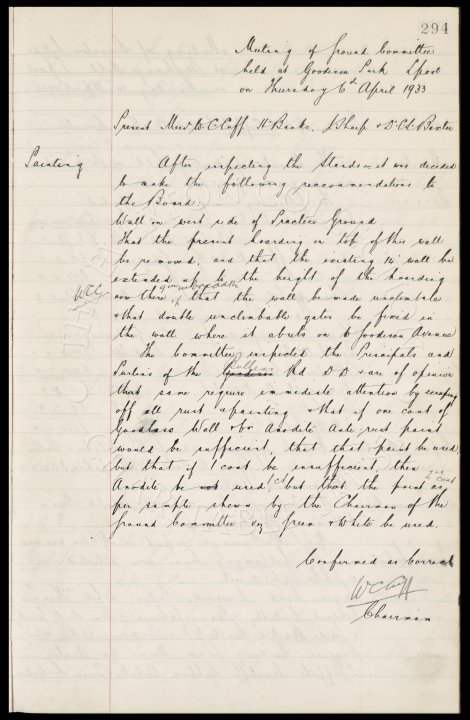 294
Meeting of Ground Committee
held at Goodison Park L'pool
on Thursday 6th April 1933
Present Messrs W. C. Cuff H. Banks, J. Sharp & Dr C. S. Baxter
Painting After inspecting the Stands it was decided
to make the following recommendations to
the Board:-
Wall on west side of Practice Ground
That the present hoarding on top of this wall
be removed, and that the existing wall be
extended up to the height of the hoarding
WCC now there 9 in in breadth & that the wall be made unclimbable
& that double unclimbable gates be fixed in
the wall where it abuts on to Goodison Avenue
The Committee inspected the Principals and
Purlins of the Goodison Bullens Rd. D D & are of opinion
that same require immediate attention by scraping
off all rust & painting & that if one coat of
Goodlass Wall & Co's Anodite Anti-rust paint
would be sufficient, that that paint be used,
but that if 1 coat be insufficient, then
Anodite be not used 1st but that the paint as 2nd coat
per sample shown by the Chairman of the
Ground Committee Green & White be used.
Confirmed as Correct
WCCuff
Chairman